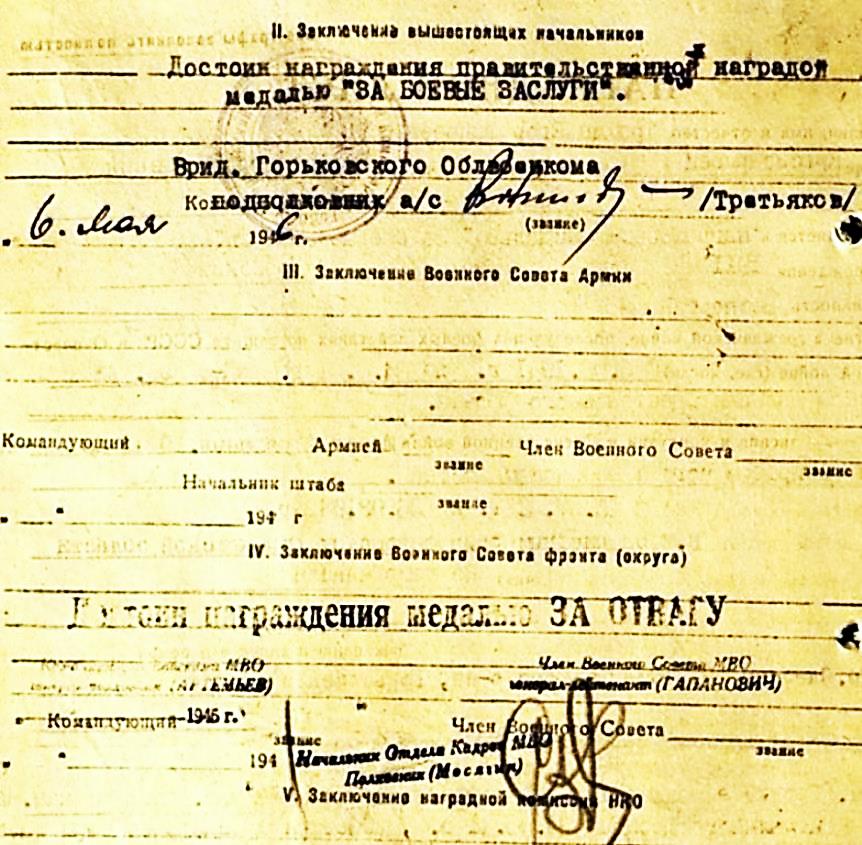 II. Заключение вышестоящих начальников
Достоин награждения правительственной наградой
медалью "ЗА БОЕВЫЕ ЗАСЛУГИ".
Врид. Горьковского Облвоенкома
подполковник а/с /Третьяков/
6. Мая 194 г. (звание)
III. Заключение Военного Совета Армии
Командующий Армией Член Военного Совета
звание звание
Начальник штаба
звание
" " 194 г
IV. Заключение Военного Совета фронта (округа)
Достоин награждения медалью ЗА ОТВАГУ
МВО Член Военного Совета МВО
(АРТЕМЬЕВ) генерал-лейтенант (ГАПАНОВИЧ)
Командующий 1945 г. Член Военного Совета
звание звание
" " 194 Начальник Отдела Кадров МВО
Полковник
V. Заключение наградной комиссии НКО